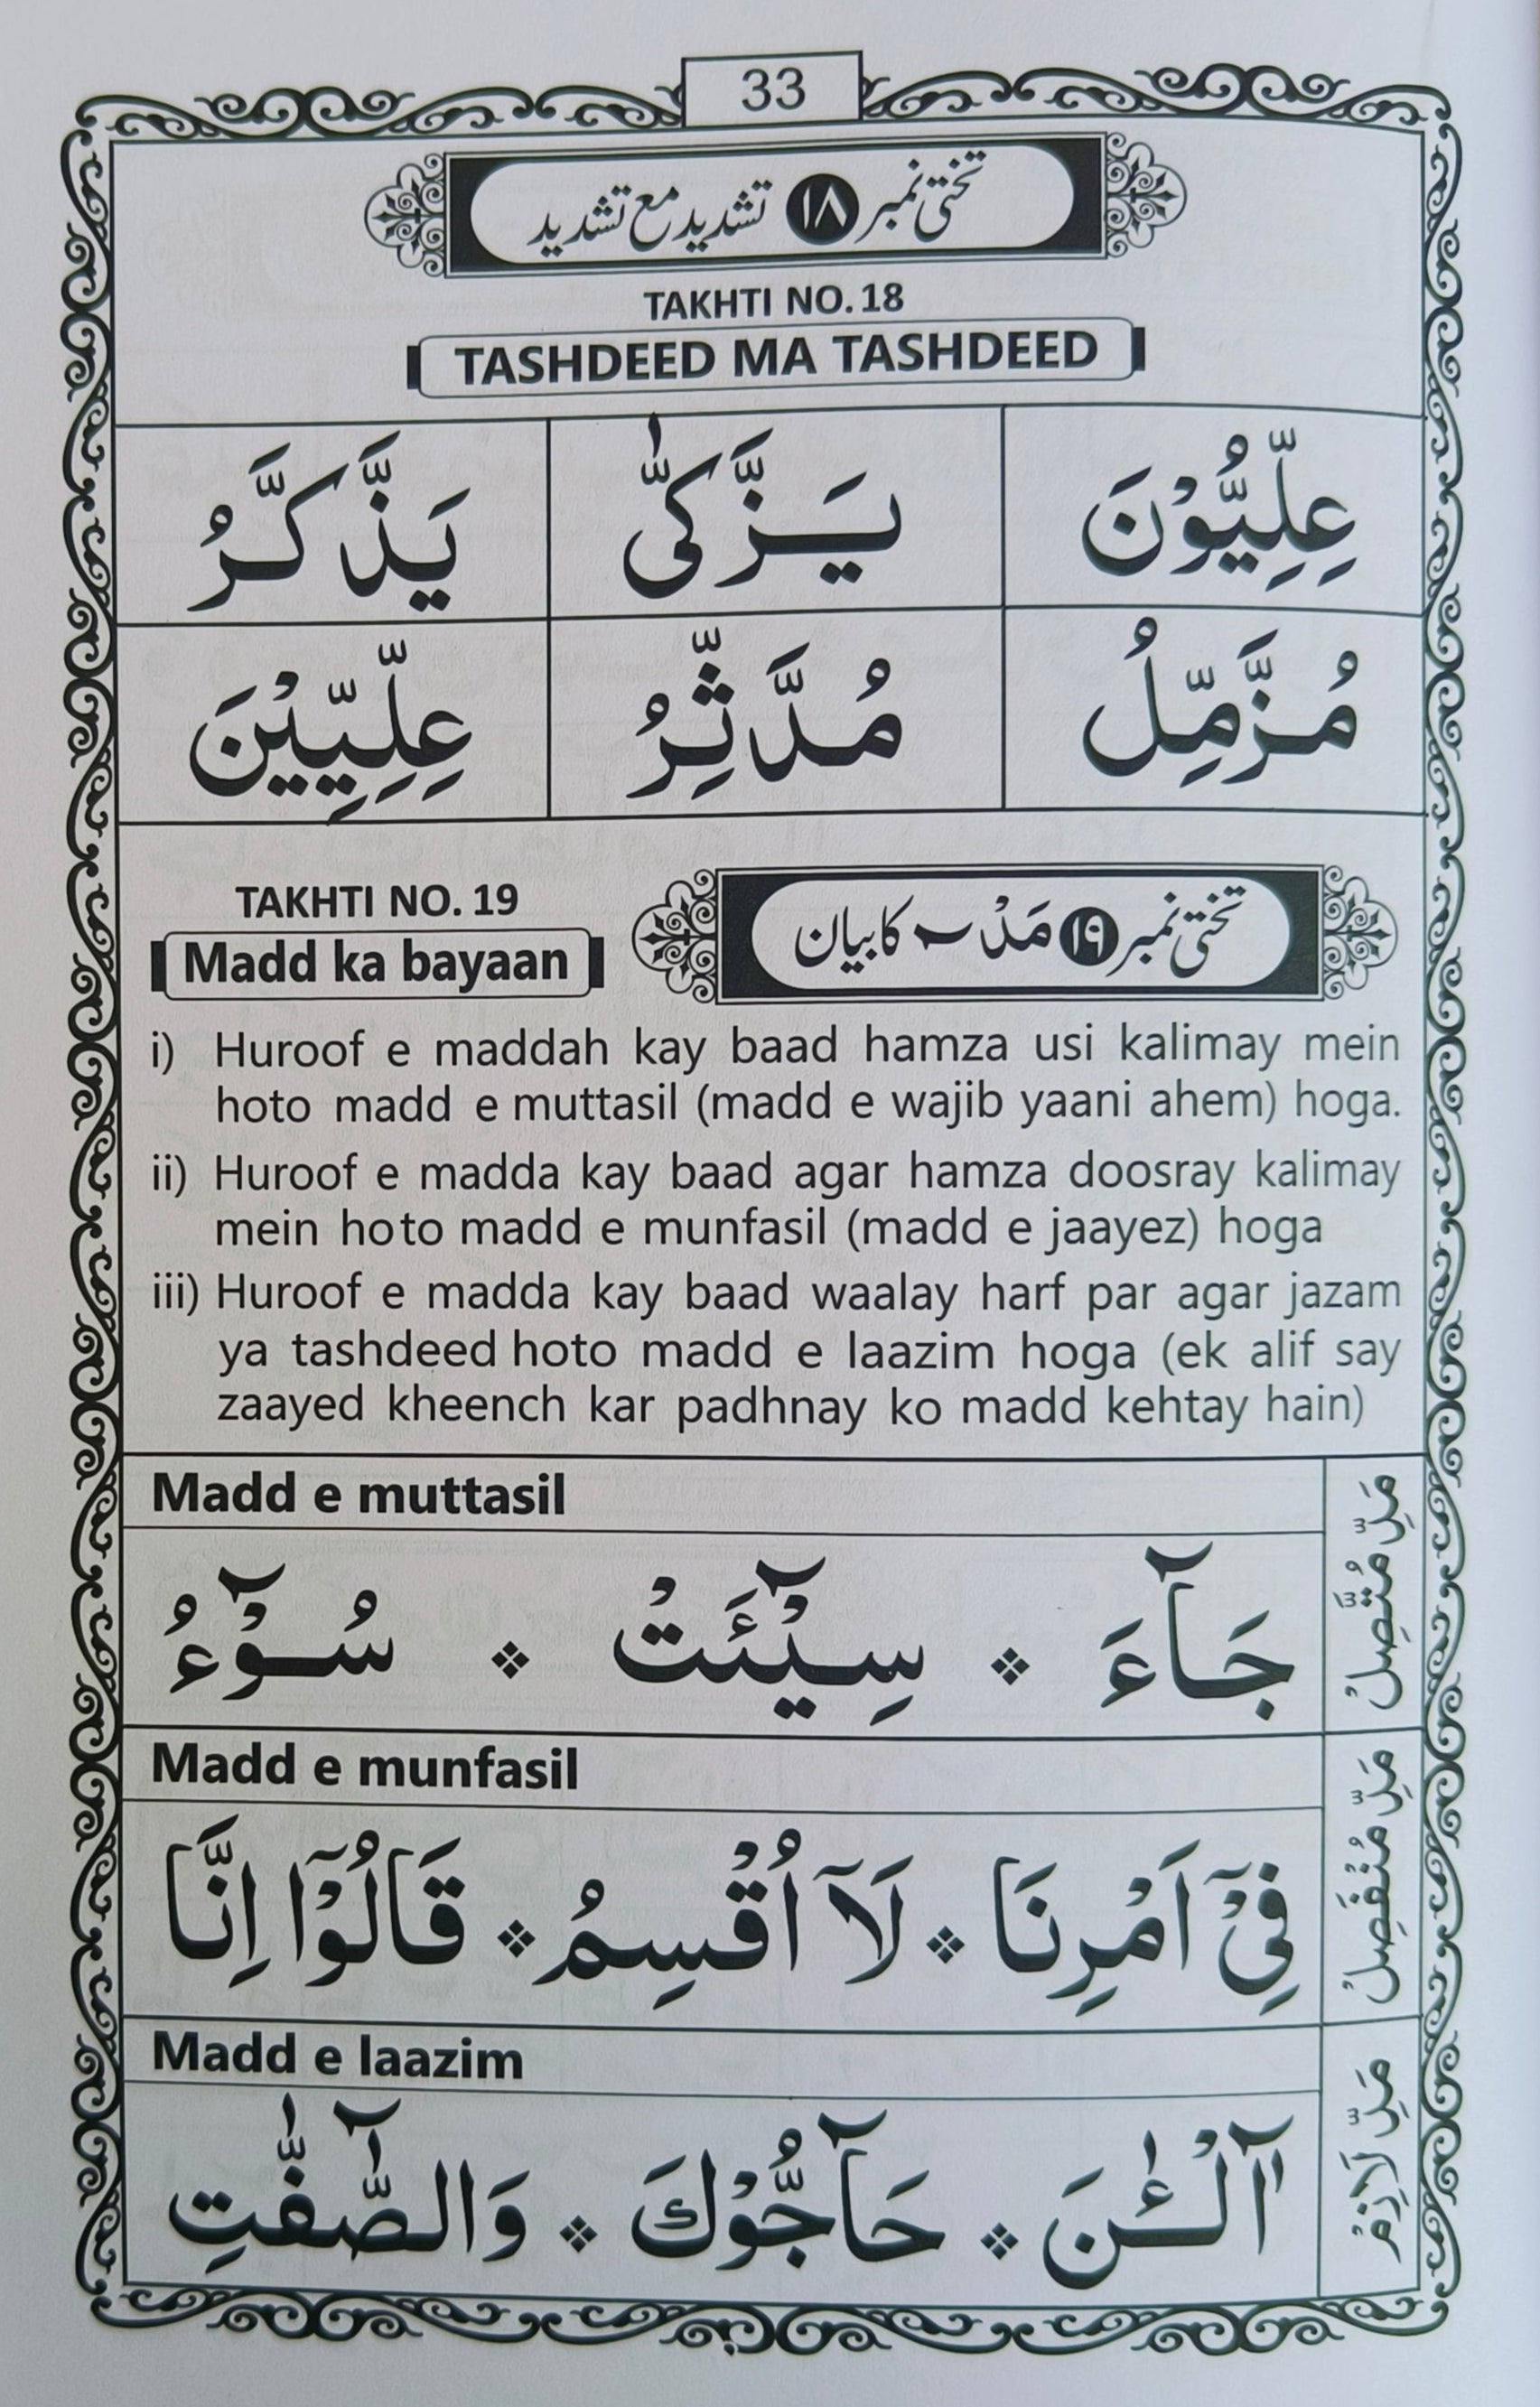 33
تختی نمبر ۱۸ تشدید مع تشدید
TAKHTI NO. 18
TASHDEED MA TASHDEED
عِلِّيُّوْنَ يَزَّكّٰى يَذَّكَّرُ
مُزَّمِّلُ مُدَّثِّرُ عِلِّيِّيْنَ
تختی نمبر ۱۹ مَدْ ٓ کا بیان
TAKHTI NO. 19
Madd ka bayaan
i) Huroof e maddah kay baad hamza usi kalimay mein
hoto madd e muttasil (madd e wajib yaani ahem) hoga.
ii) Huroof e madda kay baad agar hamza doosray kalimay
mein hoto madd e munfasil (madd e jaayez) hoga
iii) Huroof e madda kay baad waalay harf par agar jazam
ya tashdeed hoto madd e laazim hoga (ek alif say
zaayed kheench kar padhnay ko madd kehtay hain)
Madd e muttasil
مَدِّ مُتَّصِلْ
جَآءَ ❖ سِيْٓئَتْ ❖ سُوْٓءُ
Madd e munfasil
مَدِّ مُنْفَصِلْ
فِيْٓ اَمْرِنَا ❖ لَآ اُقْسِمُ ❖ قَالُوْٓا اِنَّا
Madd e laazim
مَدِّ لَازِمْ
آٰلْـٰٔنَ ❖ حَآجُّوْكَ ❖ وَالصّٰٓفّٰتِ